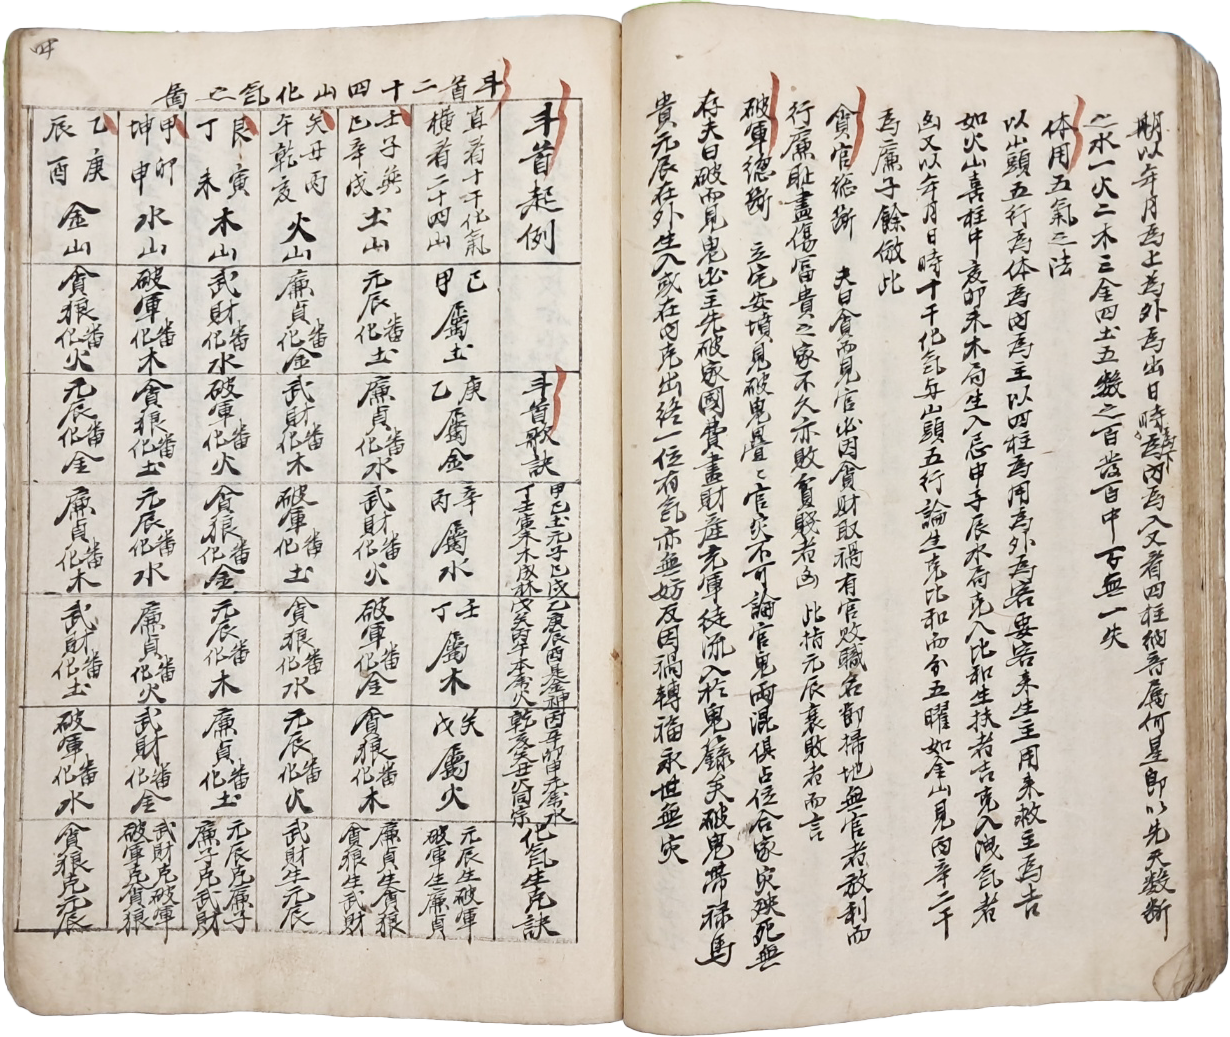 期以年月為上為外為出日時為下為內為入又看四柱納音屬何星即以先天數斷
之水一火二木三金四土五數之百發百中百無一失
体用五氣之法
以山頭五行為体為內為主以四柱為用為外為客要客來生主用來救主為吉
如火山喜柱中亥卯未木局生入忌申子辰水局克入比和生扶者吉克入洩氣者
凶又以年月日時十干化氣与山頭五行論生克比和而分五曜如金山見丙辛二干
為廉子餘倣此
貪官總斷 夫曰貪而見官出因貪財取禍有官敗職名節掃地無官者敖利而
行廉恥盡傷富貴之家不久亦敗貧賤者凶 此指元辰衰敗者而言
破軍總斷 立宅安墳見破鬼疊〻官災不可論官鬼兩混俱占位合家災殃死無
存夫曰破而見鬼出主先破家國費盡財産充軍徒流入於鬼籙矣破鬼帶祿馬
貴元辰在外生入或在內克出終一位有氣亦無妨反因禍轉福永世無災
斗首二十四山化氣之啚
斗首起例
斗首歌訣
甲己土元子巳戊乙庚辰酉是金神丙辛坤申
丁壬寅未木成林戊癸丙午本屬火乾亥癸丑火同宗
化氣生克訣
直看十干化氣
橫看二十四山
己甲屬土
庚乙屬金
辛丙屬水
壬丁屬木
癸戊屬火
元辰生破軍
破軍生廉貞
壬子巽
巳辛戌
土山
元辰番化土
廉貞番化水
武財番化火
破軍番化金
貪狼番化木
廉貞生貪狼
貪狼生武財
癸丑丙
午乾亥
火山
廉貞番化金
武財番化木
破軍番化土
貪狼番化水
元辰番化火
武財生元辰
艮寅
丁未
木山
武財番化水
破軍番化火
貪狼番化金
元辰番化木
廉貞番化土
元辰克廉子
廉子克武財
甲卯
坤申
水山
破軍番化木
貪狼番化土
元辰番化水
廉貞番化火
武財番化金
武財克破軍
破軍克貪狼
乙庚
辰酉
金山
貪狼番化火
元辰番化金
廉貞番化木
武財番化土
破軍番化水
貪狼克元辰